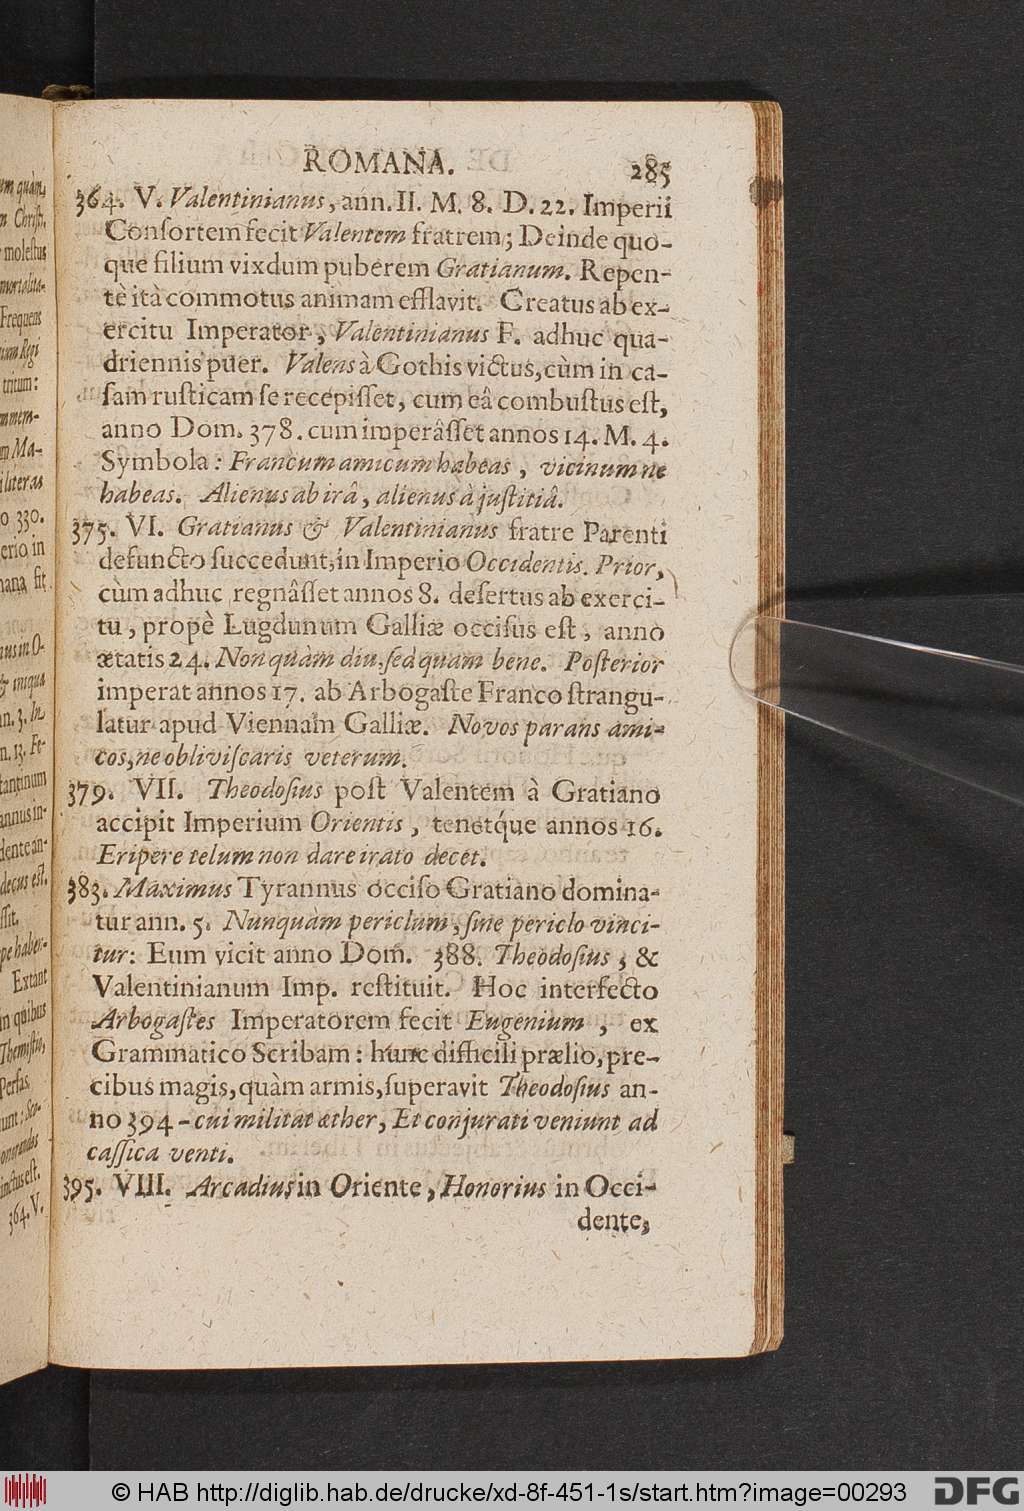 ROMANA. 285
364. V. Valentinianus, ann. II. M. 8. D. 22. Imperii
Conſortem fecit Valentem fratrem; Deinde quo-
que filium vixdum puberem Gratianum. Repen-
tè ità commotus animam efflavit. Creatus ab ex-
ercitu Imperator, Valentinianus F. adhuc qua-
driennis puer. Valens à Gothis victus, cùm in ca-
ſam ruſticam ſe recepiſſet, cum eâ combuſtus eſt,
anno Dom. 378. cum imperâſſet annos 14. M. 4.
Symbola: Francum amicum habeas, vicinum ne
habeas. Alienus ab irâ, alienus à juſtitiâ.
375. VI. Gratianus & Valentinianus fratre Parenti
defuncto ſuccedunt, in Imperio Occidentis. Prior,
cùm adhuc regnâſſet annos 8. deſertus ab exerci-
tu, propè Lugdunum Galliæ occiſus eſt, anno
ætatis 24. Non quàm diu, ſed quam bene. Poſterior
imperat annos 17. ab Arbogaſte Franco ſtrangu-
latur apud Viennam Galliæ. Novos parans ami-
cos, ne obliviſcaris veterum.
379. VII. Theodoſius poſt Valentem à Gratiano
accipit Imperium Orientis, tenetq́ue annos 16.
Eripere telum non dare irato decet.
383. Maximus Tyrannus occiſo Gratiano domina-
tur ann. 5. Nunquàm periclum, ſine periclo vinci-
tur: Eum vicit anno Dom. 388. Theodoſius, &
Valentinianum Imp. reſtituit. Hoc interfecto
Arbogaſtes Imperatorem fecit Eugenium, ex
Grammatico Scribam: hunc difficili prælio, pre-
cibus magis, quàm armis, ſuperavit Theodoſius an-
no 394 - cui militat æther, Et conjurati veniunt ad
caſſica venti.
395. VIII. Arcadius in Oriente, Honorius in Occi-
dente,
© HAB http://diglib.hab.de/drucke/xd-8f-451-1s/start.htm?image=00293 DFG